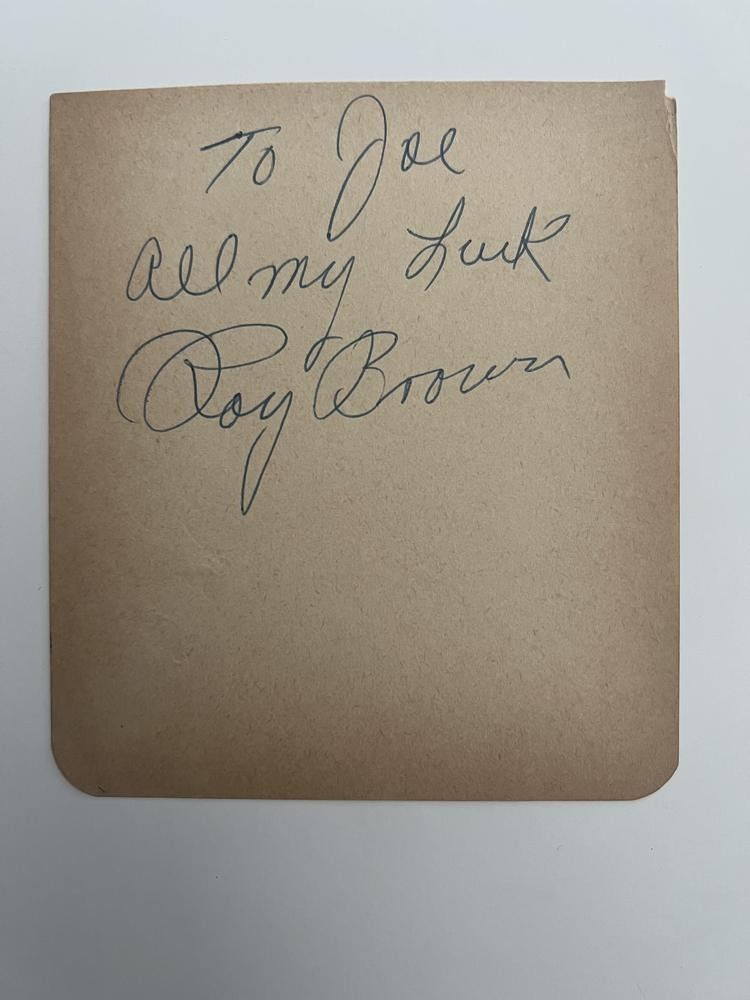 To Joe
All my Luck
Roy Brown